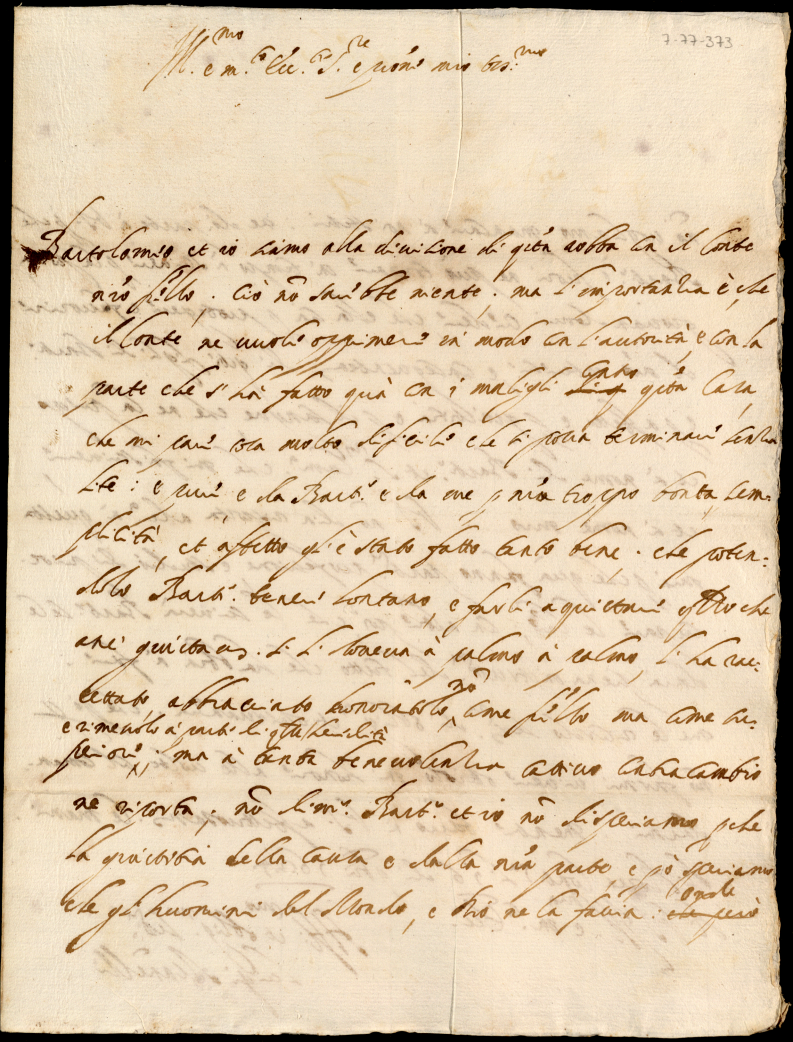 7-77-373
Ill.mo e m.to Ecc.te S.re e pron̄e mio oss.mo
Bartolomeo et io siamo alla divisione di q̄sta robba con il Conte
n̄ro f̄rello, ciò nō sarebbe niente, ma l'importantia è, che
il Conte ne vuole opprimere in modo con l'autorità, e con la
parte che s'hà fatto quà con i q̄sta Casa,
che mi pare cosa molto dificile che si possa terminare senza
lite: e pure e da Bart.o e da me p n̄ra troppo bontà, sem-
plicità, et affetto gli è stato fatto tanto bene, che poten-
dolo Bart.o tenere lontano, e farli aquistare q̄llo che
si li doveva à palmo à palmo, l'ha rac-
cettato, abbracciato honoratolo nō come f̄rello ma come su-
e rimessolo à parte di
periore; ma à tanta benevolentia cattivo contracambio
ne riporta, nō dimeno Bart.o et io nō disperiamo pche
la giustitia della causa e dalla n̄ra parte, e pò speriamo
che gl'huomini del Mondo, e Dio ne la faccia: onde
che però